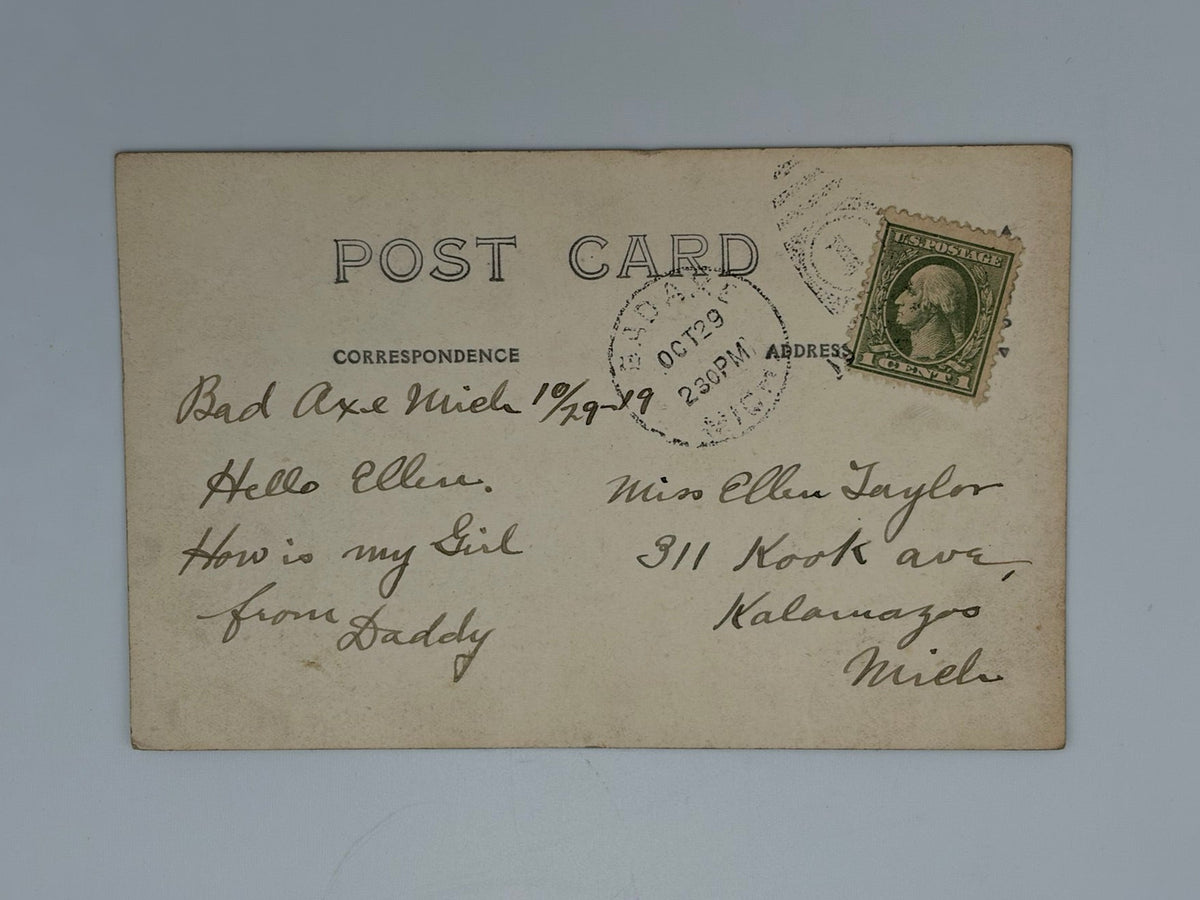 POST CARD
CORRESPONDENCE
ADDRESS
U.S. POSTAGE
1 CENT 1
BAD AXE
OCT 29
2 30 PM
MICH.
Bad Axe Mich 10/29-19
Hello Ellen.
How is my Girl
from Daddy
Miss Ellen Taylor
311 Kook ave,
Kalamazoo
Mich